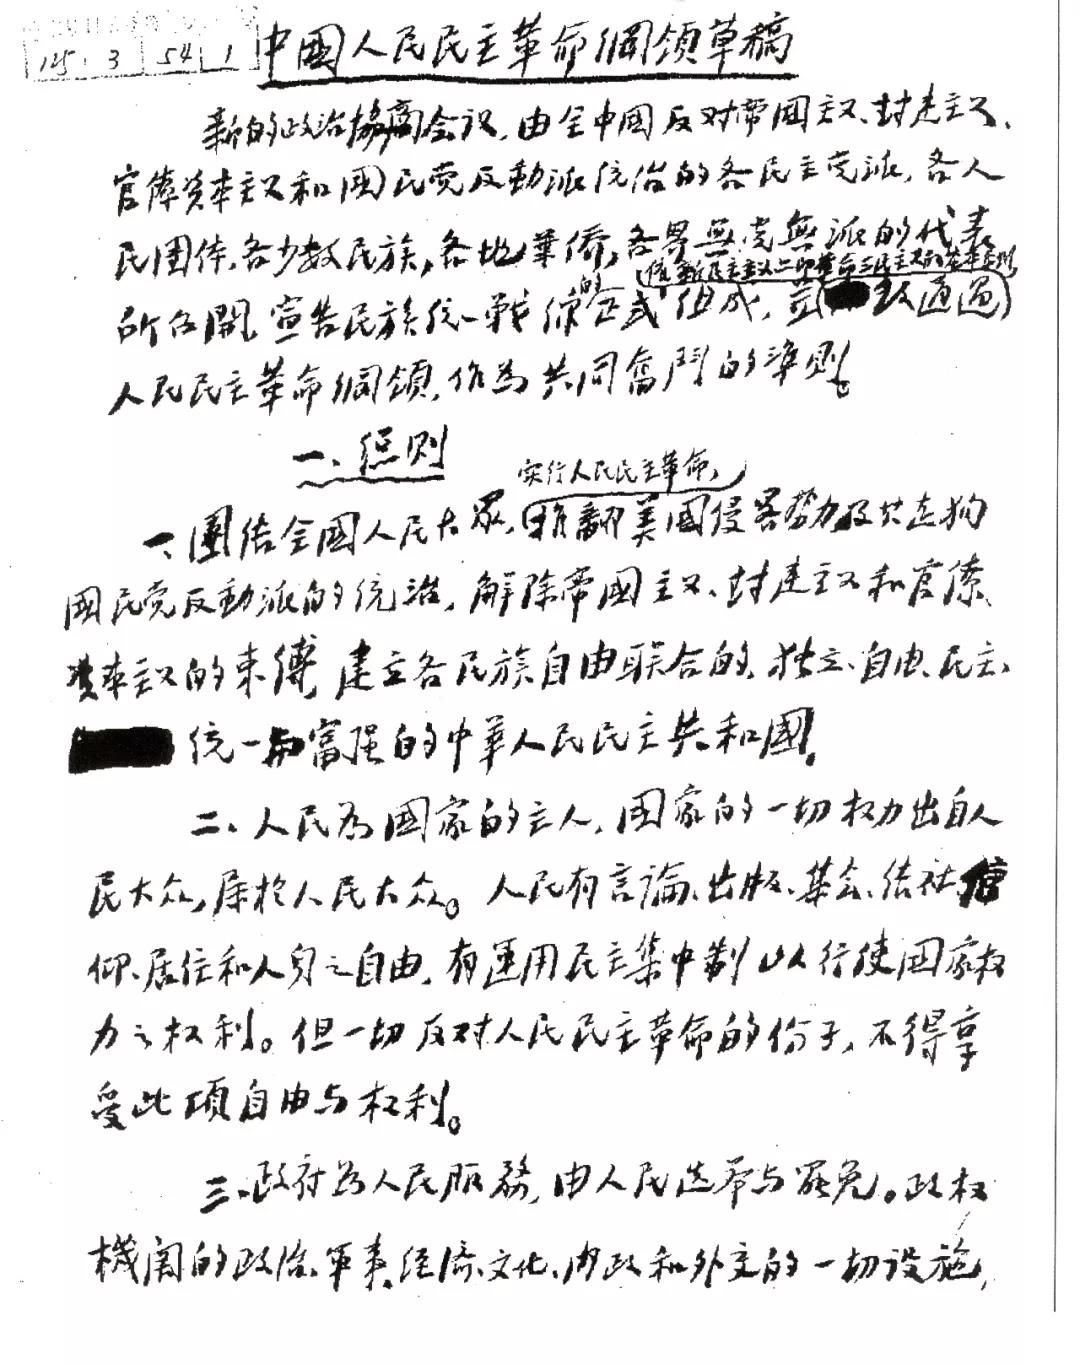 125 3 54 1
中國人民民主革命綱領草稿
新的政治協商会议,由全中國反对帝國主义、封建主义、
官僚资本主义和國民党反動派统治的各民主党派,各人
民团体,各少数民族,各地華侨,各界無党無派的代表
依新民主主义—即革命三民主义的基本原则
的
所召開,宣告民族统一戰線正式组成,並一致通過
人民民主革命綱領,作為共同奮鬥的準则。
一、总则
实行人民民主革命,
一、團结全國人民大眾,推翻美國侵畧势力及其走狗
國民党反動派的统治,解除帝國主义、封建主义和官僚
资本主义的束缚,建立各民族自由联合的、独立、自由、民主、
统一与富强的中華人民民主共和國。
二、人民為國家的主人,國家的一切权力出自人
民大众,属於人民大众。人民有言論、出版、集会、结社、信
仰、居住和人身之自由,有運用民主集中制以行使國家权
力之权利。但一切反对人民民主革命的份子,不得享
受此項自由与权利。
三、政府为人民服務,由人民选举与罷免。政权
機関的政治、軍事、经济、文化、内政和外交的一切设施,